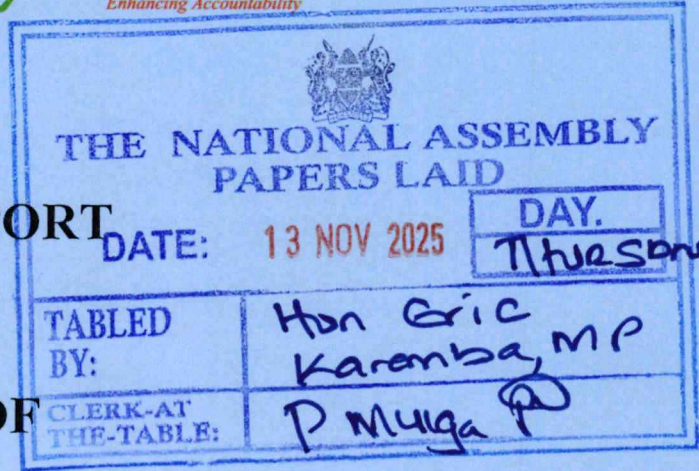 Enhancing Accountability
THE NATIONAL ASSEMBLY
PAPERS LAID
ORT
DATE: 13 NOV 2025
DAY.
Thursday
TABLED BY:
Hon Eric
Karemba, MP
OF
CLERK-AT
THE-TABLE:
P Muiga